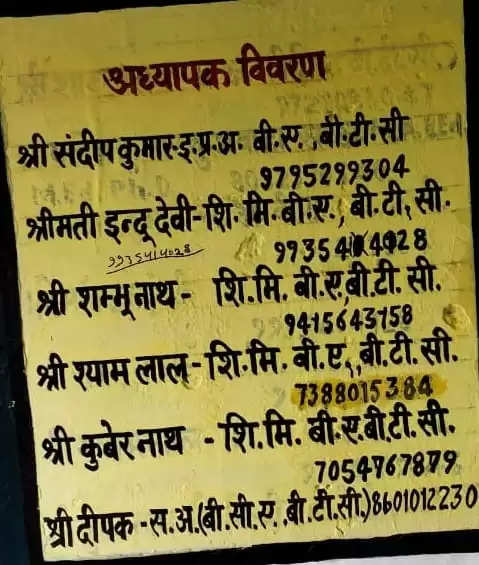 अध्यापक विवरण
श्री संदीप कुमार-इ.प्र.अ. बी.ए. ,बी.टी.सी
9795299304
श्रीमती इन्दू देवी-शि. मि. बी.ए., बी.टी. सी.
9935414028
9935414028
श्री शम्भू नाथ - शि.मि. बी.ए,बी.टी. सी.
9415643158
श्री श्याम लाल-शि.मि. बी.ए., बी.टी. सी.
7388015384
श्री कुबेर नाथ - शि.मि. बी.ए.बी.टी.सी.
7054767879
श्री दीपक -स.अ.(बी.सी.ए .बी.टी.सी.)8601012230